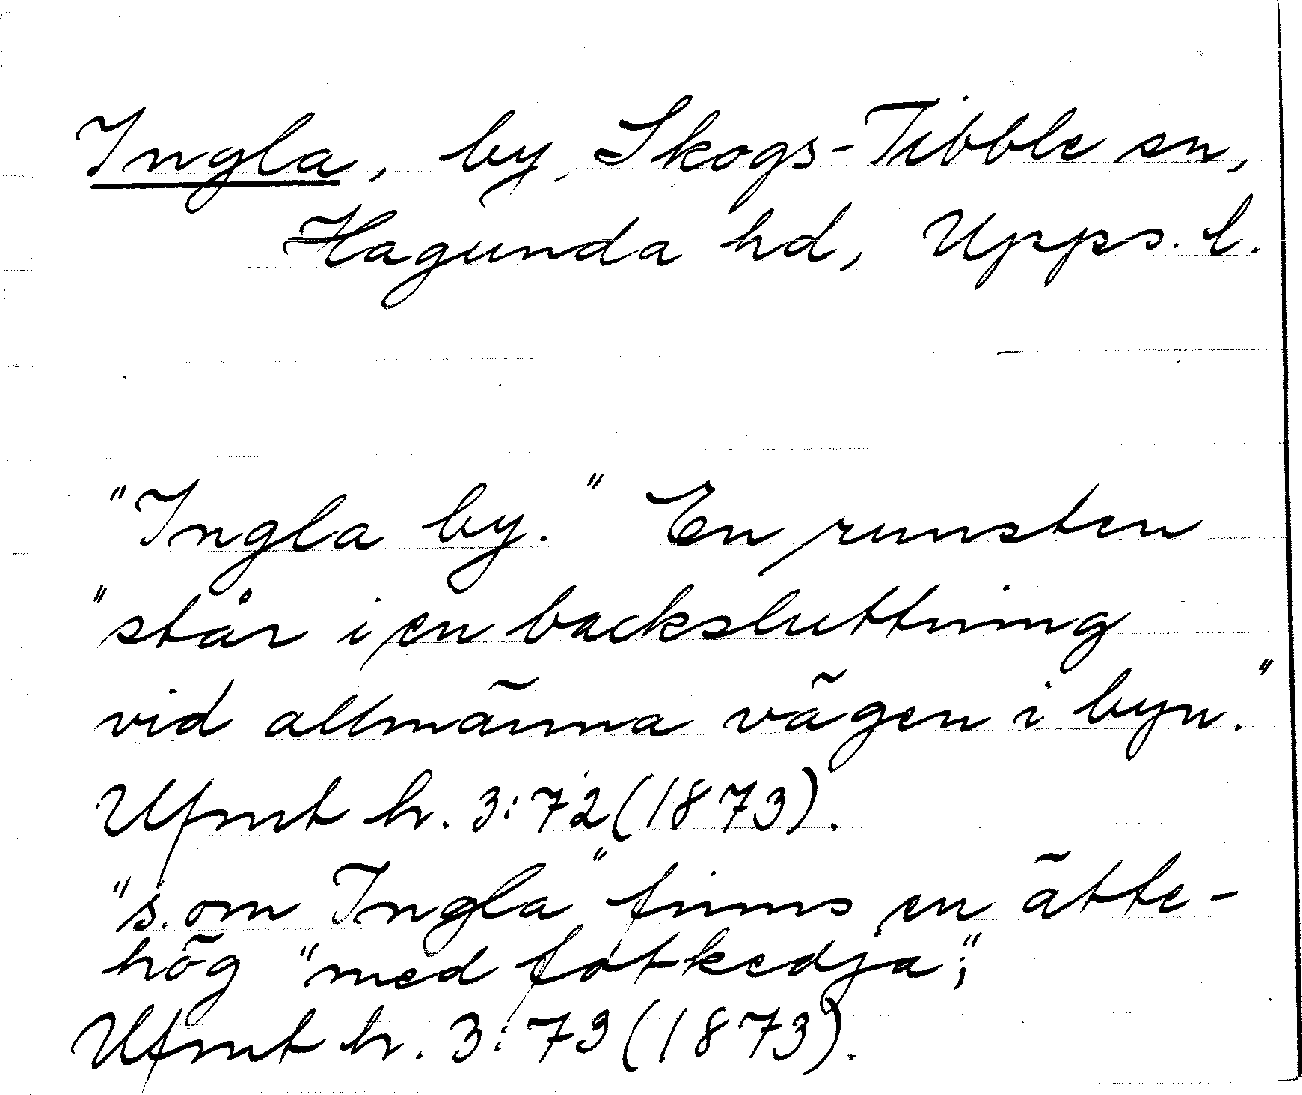 Ingla, by, Skogs-Tibble sn,
Hagunda hd, Upps. l.
"Ingla by." En runsten
"står i en backsluttning
vid allmänna vägen i byn."
Ufmt h. 3:72 (1873).
"s. om Ingla" finns en ätte-
hög "med fotkedja";
Ufmt h. 3:73 (1873).